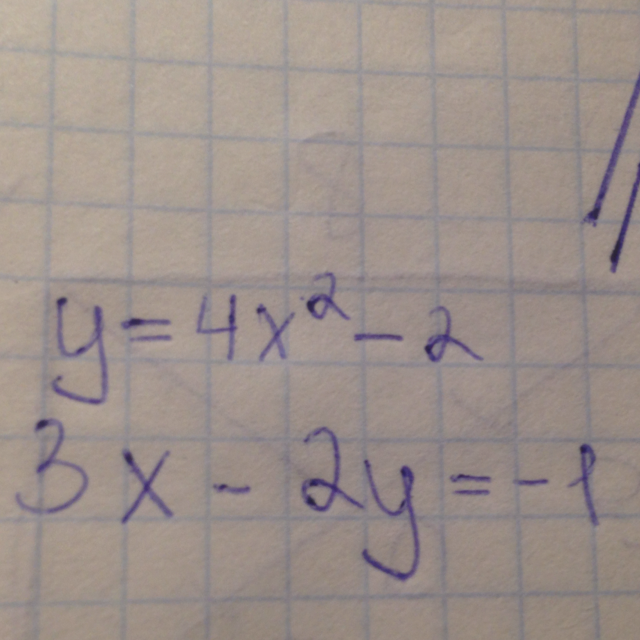 y = 4x² - 2
3x - 2y = -1